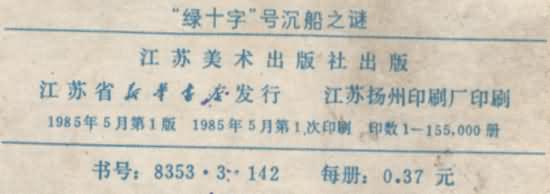 “绿十字”号沉船之谜
江苏美术出版社出版
江苏省新华书店发行 江苏扬州印刷厂印刷
1985年5月第1版 1985年5月第1次印刷 印数1—155,000册
书号：8353·3·142 每册：0.37元